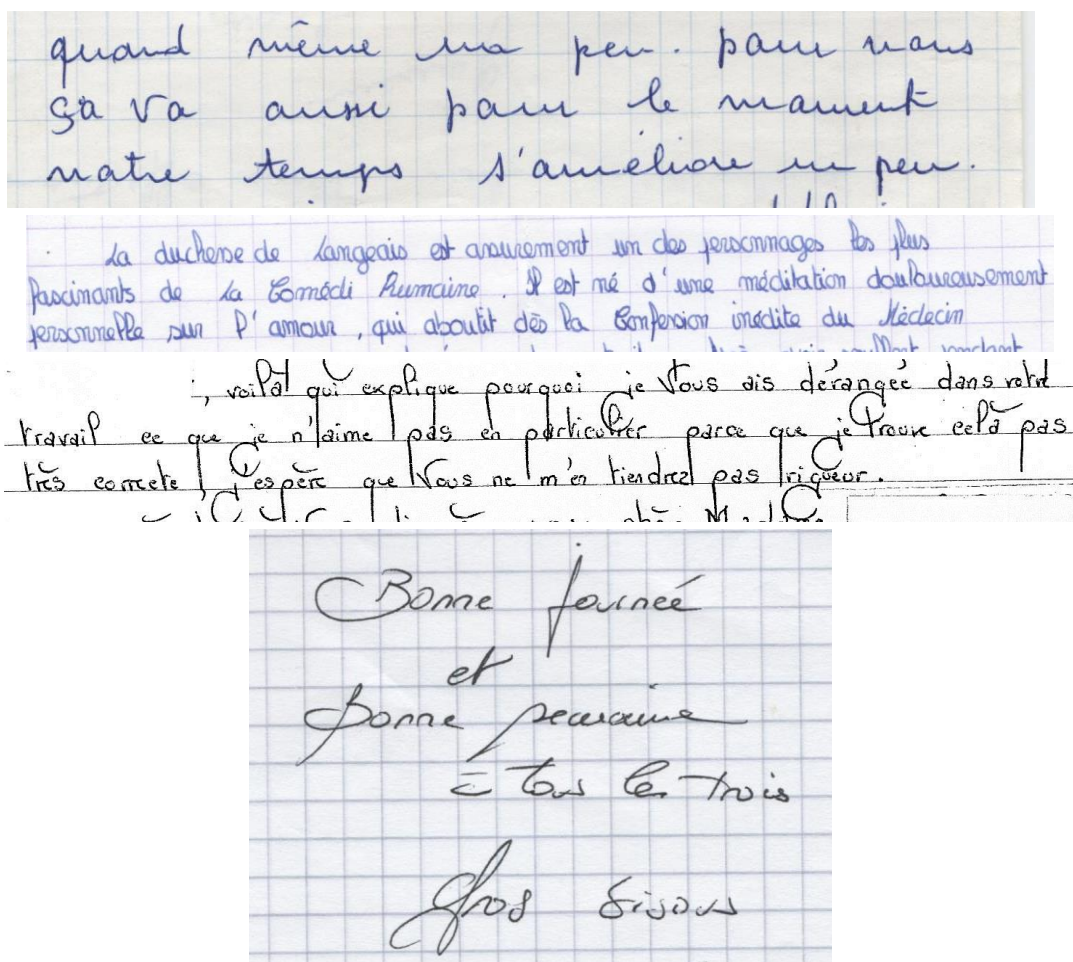 quand même un peu. pour nous
ça va aussi pour le moment
notre temps s'améliore un peu.
La duchesse de Langeais est assurement un des personnages les plus
fascinants de La Comédi Humaine. Il est né d'une méditation douloureusement
personnelle sur l'amour, qui aboutit dès la Confession inédite du Médecin
, voilà qui explique pourquoi je Vous ais dérangée dans votre
travail ce que je n'aime pas en particulier parce que je trouve celà pas
très correcte, j'espère que Vous ne m'en tiendrez pas rigueur.
Bonne journée
et
Bonne semaine
à tous les trois
Gros bisous